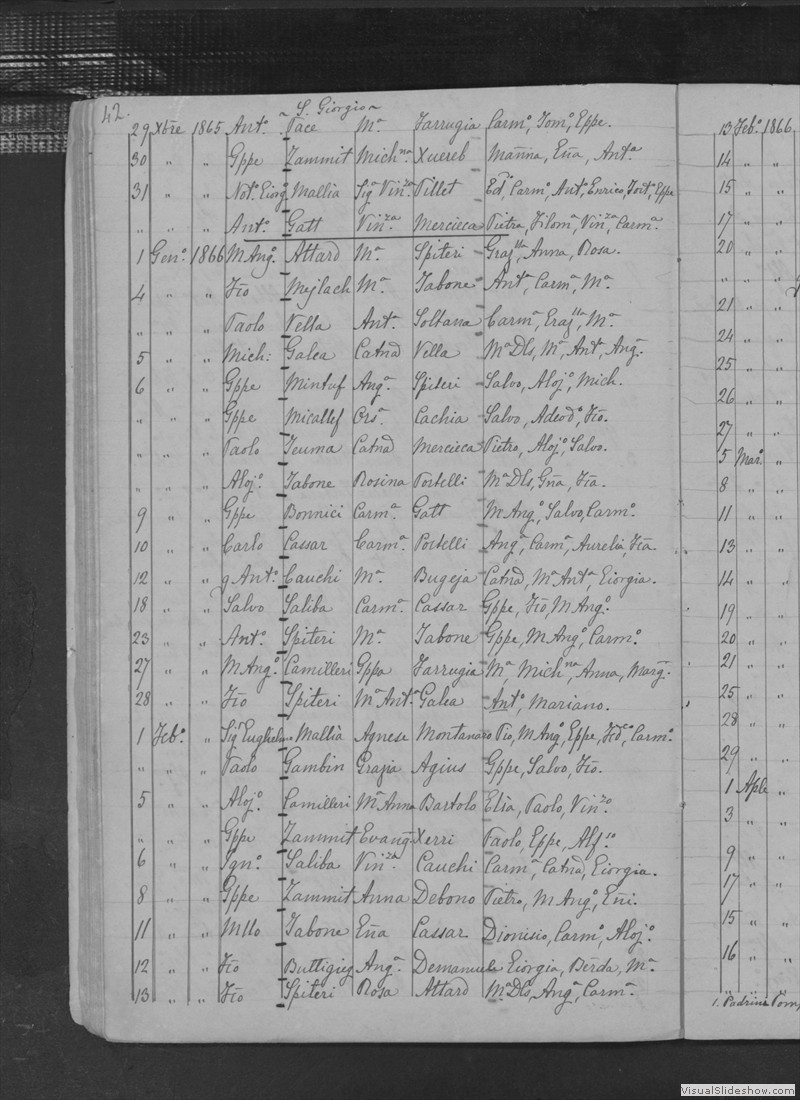 42. S. Giorgio
29 Xbre 1865 Ant.º Pace M.ª Farrugia Carm.º, Tom.º, Gppe.
30 " " Gppe Zammit Mich.na Xuereb Marina, Eña, Ant.ª
31 " " Not.º Giorg. Mallia Sig.ª Vin.za Pillet Ed.º, Carm.º, Ant.º, Enrico, Fort.º, Gppe
" " " Ant.º Gatt Vin.za Mercieca Pietra, Filom.ª, Vin.za, Carm.ª
1 Gen.º 1866 M Ang.º Attard M.ª Spiteri Graz.lla, Anna, Rosa.
4 " " Fſo Mejlach M.ª Tabone Ant.ª, Carm.ª, M.ª
" " " Paolo Vella Ant.ª Soltana Carm.ª, Graz.lla, M.ª
5 " " Mich: Galea Catnā Vella M.ª Dls, M.ª, Ant.ª, Ang.ª
6 " " Gppe Mintuf Ang.ª Spiteri Salvo, Aloj.º, Mich.
" " " Gppe Micallef Ors.ª Cachia Salvo, Adeod.º, Fſo.
" " " Paolo Teuma Catnā Mercieca Pietro, Aloj.º, Salvo.
" " " Aloj.º Tabone Rosina Portelli M.ª Dls, Gña, Fſa.
9 " " Gppe Bonnici Carm.ª Gatt M Ang.º, Salvo, Carm.º
10 " " Carlo Cassar Carm.ª Portelli Ang.ª, Carm.ª, Aurelia, Fſca.
12 " " q Ant.º Cauchi M.ª Bugeja Catnā, M.ª Ant.ª, Giorgia.
18 " " Salvo Saliba Carm.ª Cassar Gppe, Fſo, M Ang.º
23 " " Ant.º Spiteri M.ª Tabone Gppe, M Ang.º, Carm.º
27 " " M Ang.º Camilleri Gppa Farrugia M.ª, Mich.na, Anna, Marg.ª
28 " " Fſo Spiteri M.ª Ant.ª Galea Ant.º, Mariano.
1 Feb.º " Sig.r Guglielmo Mallia Agnese Montanaro Pio, M Ang.º, Gppe, Fed.co, Carm.º
" " " Paolo Gambin Grazia Agius Gppe, Salvo, Fſo.
5 " " Aloj.º Camilleri M.ª Anna Bartolo Elia, Paolo, Vin.zo
" " " Gppe Zammit Evang.ª Xerri Paolo, Gppe, Alf.so
6 " " Ign.º Saliba Vin.za Cauchi Carm.ª, Catnā, Giorgia.
8 " " Gppe Zammit Anna Debono Pietro, M Ang.º, Eñi.
11 " " Mllo Tabone Eña Cassar Dionisio, Carm.º, Aloj.º
12 " " Fſo Buttigieg Ang.ª Demanuele Giorgia, Bẽrda, M.ª
13 " " Fſo Spiteri Rosa Attard M.ª Dls, Ang.ª, Carm.ª
13 Feb.º 1866
14 " "
15 " "
17 " "
20 " "
" " "
21 " "
24 " "
25 " "
26 " "
27 " "
5 Mar. "
8 " "
11 " "
13 " "
14 " "
19 " "
20 " "
21 " "
25 " "
28 " "
29 " "
1 Aple "
3 " "
9 " "
17 " "
15 " "
16 " "
1. Padrini
VisualSlideshow.com